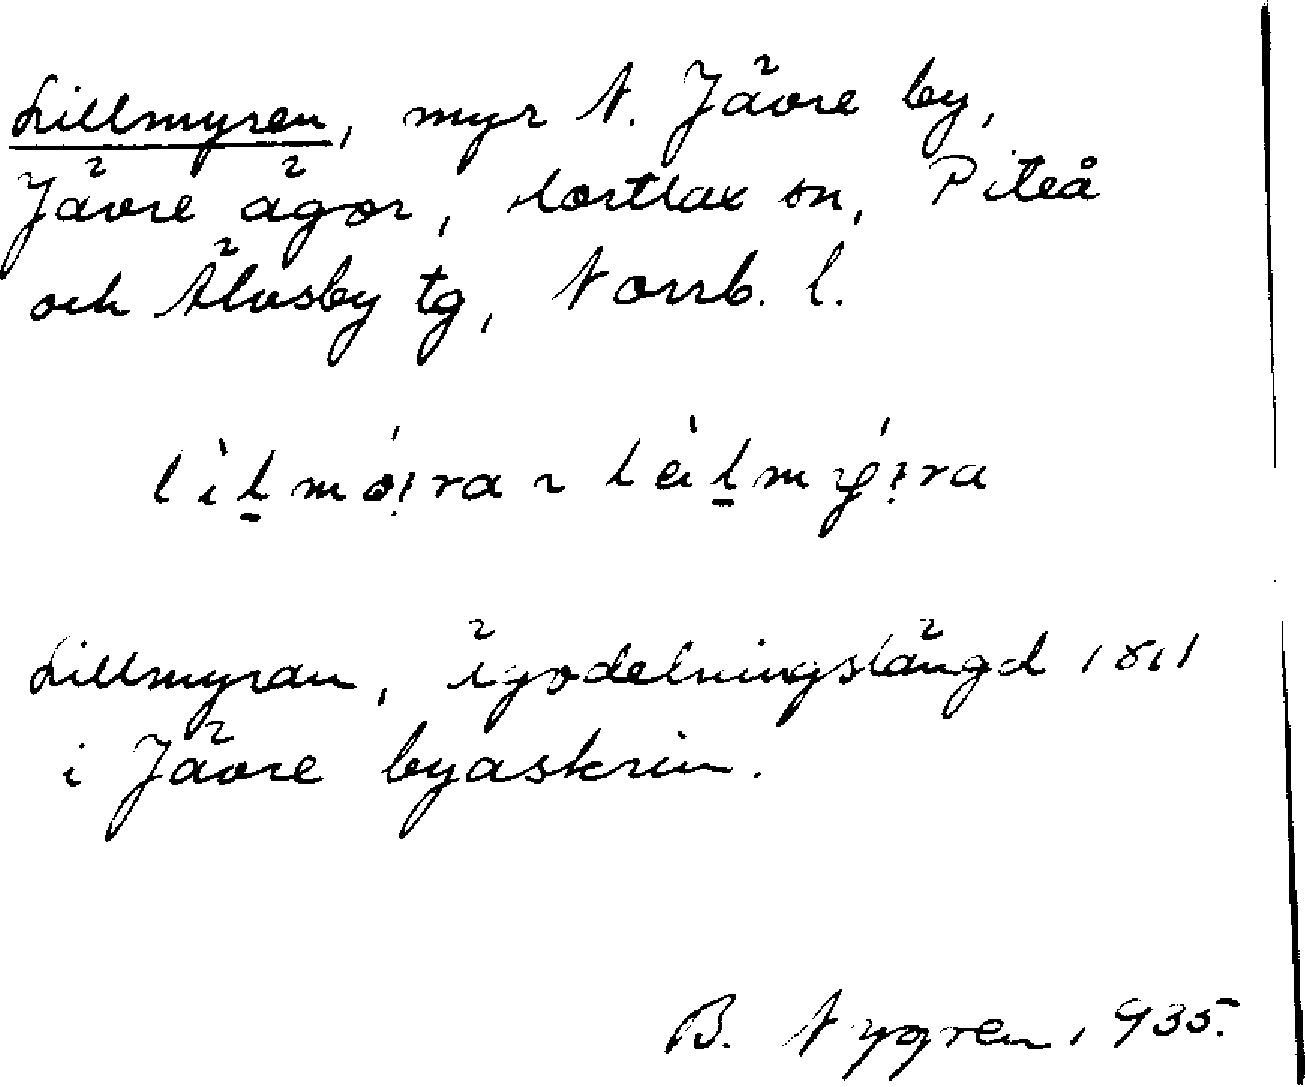 Lillmyren, myr N. Jävre by,
Jävre ägor, Hortlax sn, Piteå
och Älvsby tg, Norrb. l.
Lillmyran, ägodelningslängd 1811
i Jävre byaskrin.
B. Nygren, 1935.